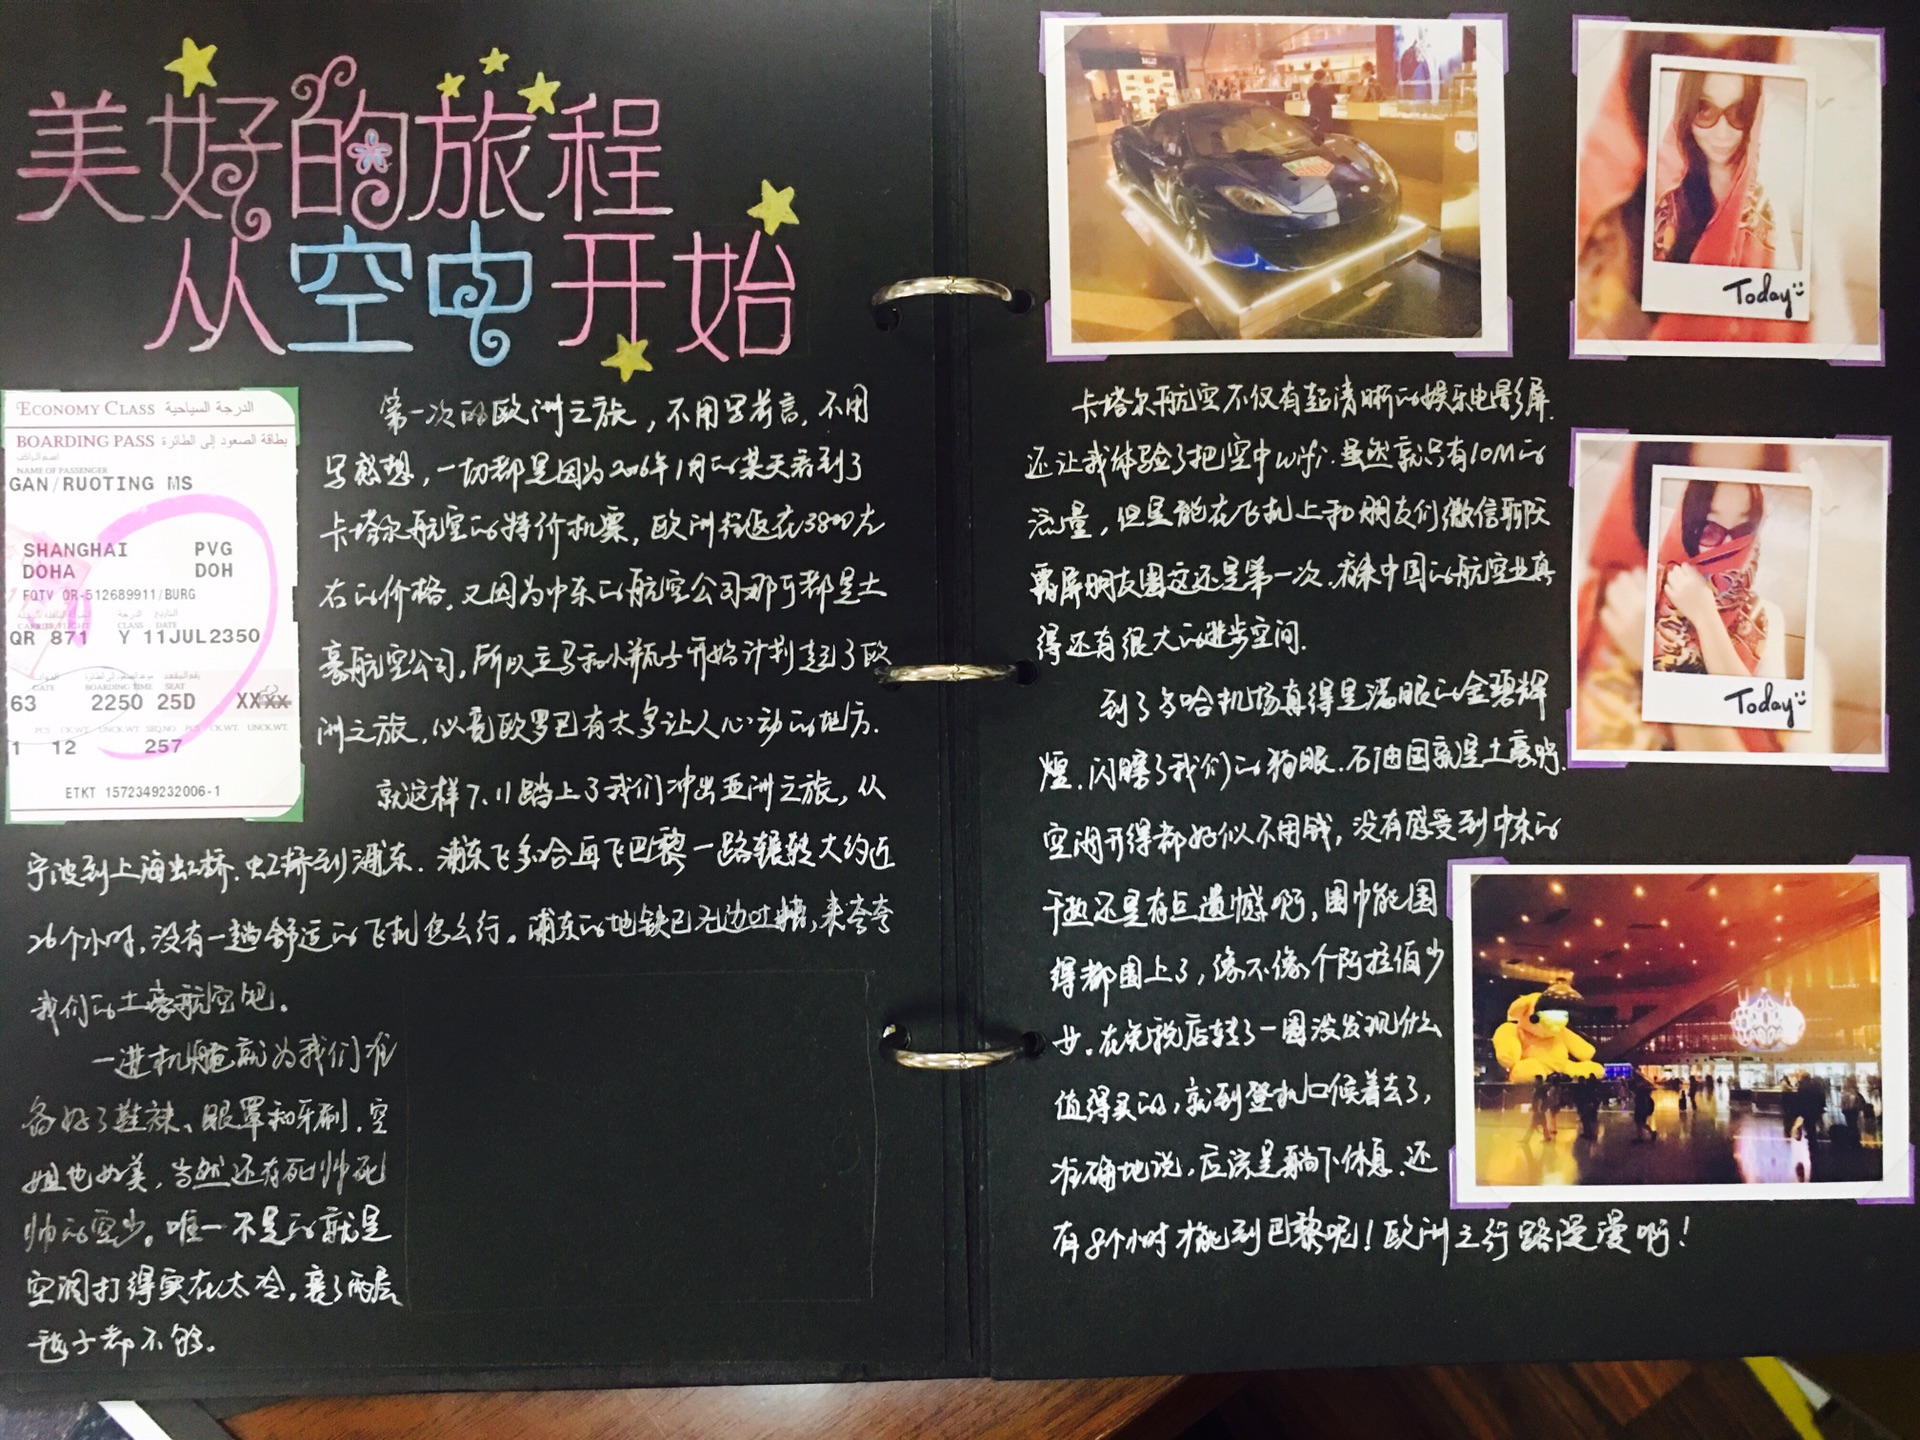 美好的旅程
从空中开始
ECONOMY CLASS الدرجة السياحية
BOARDING PASS بطاقة الصعود إلى الطائرة
NAME OF PASSENGER
GAN/RUOTING MS
SHANGHAI PVG
DOHA DOH
FQTV QR-512689911/BURG
CARRIER/FLIGHT CLASS DATE
QR 871 Y 11JUL2350
GATE BOARDING TIME SEAT
63 2250 25D XXXX
PCS CK.WT. UNCK.WT. SEQ.NO. PCS CK.WT. UNCK.WT.
1 12 257
ETKT 1572349232006-1
第一次的欧洲之旅，不用写前言，不用
写感想，一切都是因为2016年1月的某天看到了
卡塔尔航空的特价机票，欧洲往返在3800左
右的价格，又因为中东的航空公司那可都是土
豪航空公司，所以立马和小瓶子开始计划起了欧
洲之旅，必竟欧罗巴有太多让人心动的地方．
就这样7.11踏上了我们冲出亚洲之旅，从
宁波到上海虹桥．虹桥到浦东．浦东飞多哈再飞巴黎一路辗转大约近
26个小时，没有一趟舒适的飞机怎么行。浦东的地铁已无边吐槽，来夸夸
我们的土豪航空吧。
一进机舱就为我们准
备好了鞋袜、眼罩和牙刷，空
姐也好美，当然还有死帅死
帅的空少。唯一不是的就是
空调打得实在太冷，裹了两层
毯子都不够。
卡塔尔航空不仅有超清晰的娱乐电影屏．
还让我体验了把空中wifi．虽然就只有10M的
流量，但是能在飞机上和朋友们微信聊天
霸屏朋友圈这还是第一次．看来中国的航空业真
得还有很大的进步空间．
到了多哈机场真得是满眼的金碧辉
煌．闪瞎了我们的狗眼．石油国就是土豪哟．
空调开得都好似不用钱，没有感受到中东的
干热还是有点遗憾啊，围巾能围
得都围上了，像不像个阿拉伯少
女．在免税店转了一圈没发现什么
值得买的，就到登机口候着去了，
准确地说，应该是躺下休息．还
有8个小时才能到巴黎呢！欧洲之行路漫漫啊！
Today
Today